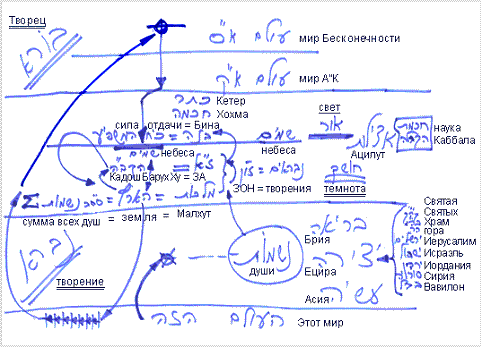 Творец
בורא
עולם א"ס мир Бесконечности
עולם א"ק мир А"К
כתר Кетер
חכמה Хохма
свет
אור
сила отдачи = Бина
בינה =
שמים
небеса
אצילות
Ацилут
חכמת
הקבלה
наука
Каббала
שמים
небеса
ז"א =
הקב"ה
КадошБарухХу = ЗА
נבראים = זו"ן
ЗОН = творения
חושך
темнота
Σ נשמות = הארץ = מלכות
сумма всех душ = земля = Малхут
נברא
творение
נשמות
души
בריאה
Брия
יצירה
Ецира
עשיה
Асия
Святая
Святых
Храм
гора
Иерусалим
Исраэль
Иордания
Сирия
Вавилон
העולם הזה Этот мир